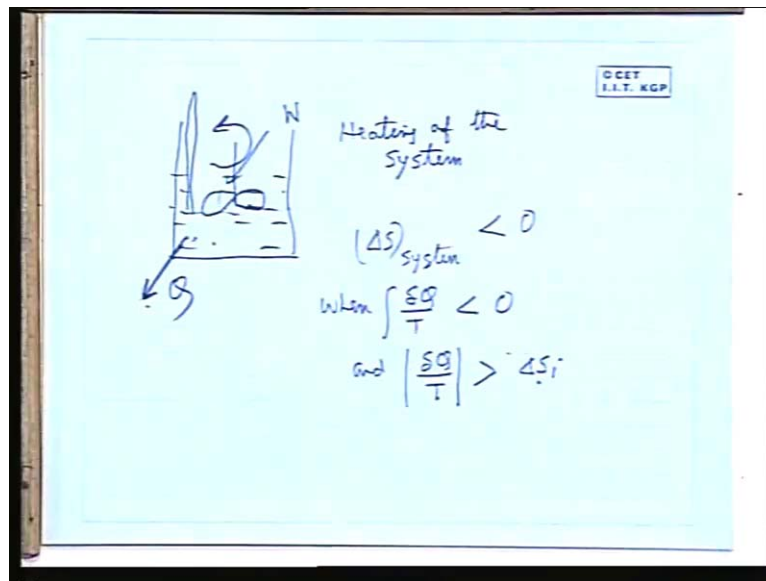 © CET
I.I.T. KGP
W
Heating of the
system
(ΔS)system < 0
when ∫ δQ/T < 0
and |δQ/T| > ΔSi
Q